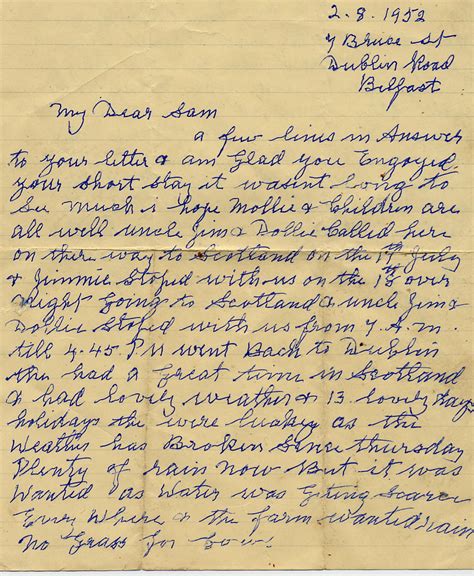 2.8.1952
7 Bruce St
Dublin Road
Belfast
My Dear Sam
a few lines in Answer
to your letter & am Glad you Engoyed
your short stay it wasint long to
See much i hope Mollie & Children are
all well uncle Jim & Dollie Called here
on there way to Scotland on the 17th July
& Jimmie Stoped with us on the 18th over
night going to Scotland & uncle Jim &
Dollie Stoped with us from 7 A.M.
till 4.45 P M went Back to Dublin
the had a great time in Scotland
& had lovely weather & 13 lovely days
holidays the were luckey as the
Weather has Broken Since thursday
Plenty of rain Now But it was
Wanted as Water was Geting Scarce
Every Where & the farm wanted rain
No Grass for Cows